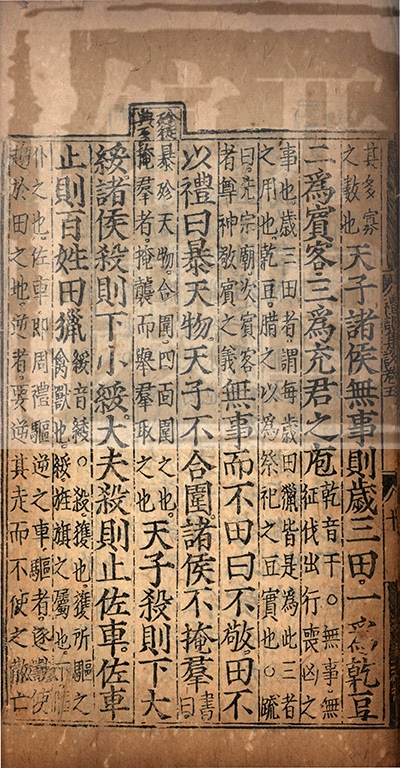 其多寡
之數也
天子諸侯無事則歲三田。一為乾豆
二為賓客。三為充君之庖
乾音干。○無事。無
征伐出行喪凶之
事也。歲三田者。謂每歲田獵。皆是為此三者
之用也。乾豆。腊之以為祭祀之豆實也。○疏
曰。先宗廟次賓客
者。尊神敬賓之義
無事而不田曰不敬。田不
以禮曰暴天物。天子不合圍。諸侯不掩羣
書
曰
殄徒
典
暴殄天物。合圍四面圍之也
掩羣者。掩襲而舉羣取之也
天子殺則下大
綏。諸侯殺則下小綏。大夫殺則止佐車。佐車
止則百姓田獵
綏音緌。○殺。獲也。獲所驅之
禽獸也。綏。旌旗之屬也。下偃
仆之也。佐車。即周禮驅逆之車。驅者。逐獸使
趨於田之地。逆者。要逆其走而不使之散亡